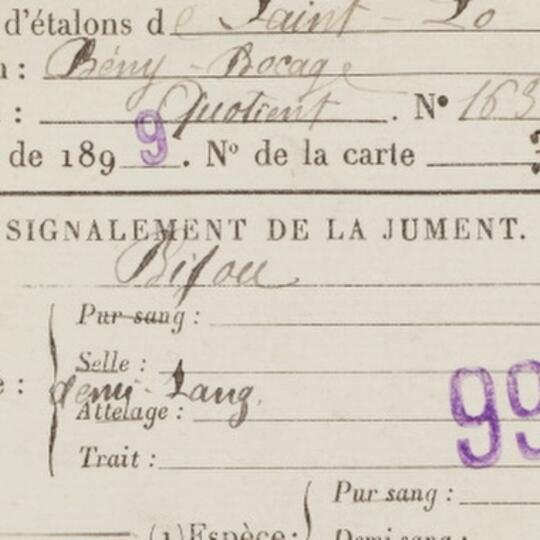 d'étalons de Saint-Lo
: Bény-Bocage
: Quotient. N° 163
de 1899. N° de la carte
SIGNALEMENT DE LA JUMENT.
Bijou
Pur sang :
Selle :
demi-sang.
Attelage :
99
Trait :
Pur sang :
(1) Espèce :
Demi-sang :